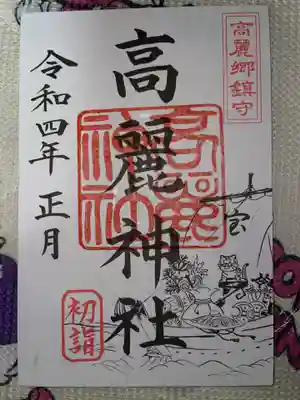 高麗郷鎮守
高麗神社
高麗
神社
令和四年 正月
初詣
宝